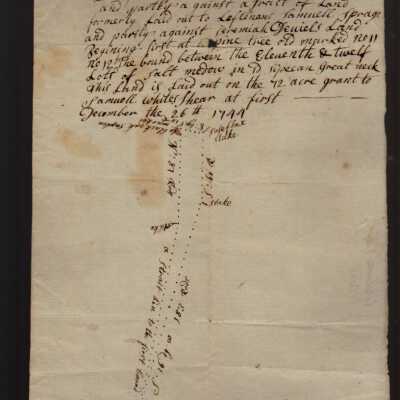 and partly a gainst a tract of Land
formerly Laid out to Leftenant Samuell Sprage
and partly against Jeremiah Deuiels Land
Begining first at a pine tree old marked No 11
No 12 the bound between the Eleventh & twelf
Lots of salt medow in great neck
this Land is Laid out on the 72 acre grant to
Samuell whites shear at first
December the 26th 1744
stake
stake
a strait Lin to the first bound